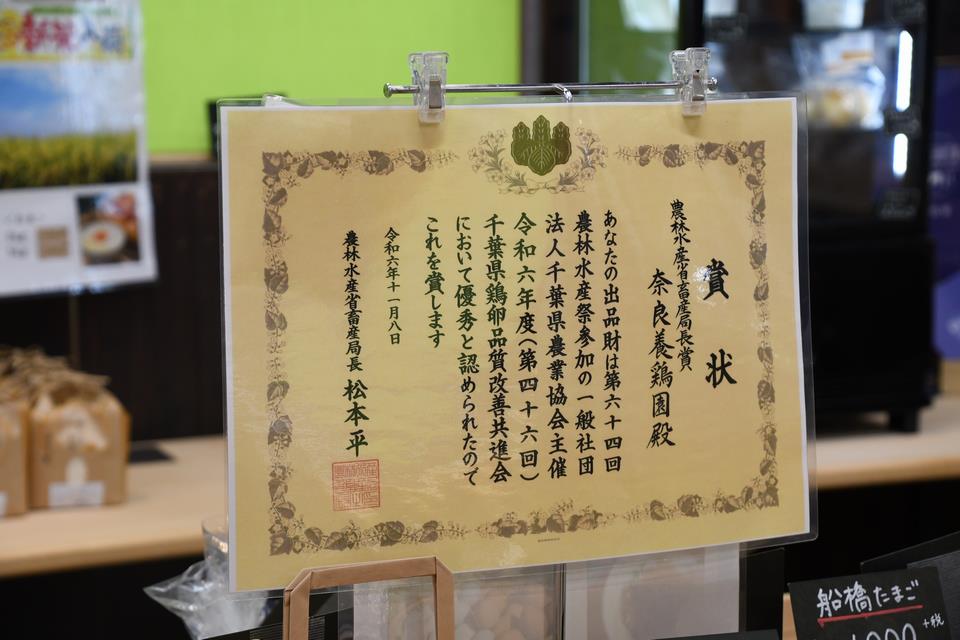 賞状
農林水産省畜産局長賞
奈良養鶏園殿
あなたの出品財は第六十四回
農林水産祭参加の一般社団
法人千葉県農業協会主催
令和六年度(第四十六回)
千葉県鶏卵品質改善共進会
において優秀と認められたので
これを賞します
令和六年十一月八日
農林水産省畜産局長 松本平
船橋たまご
+税